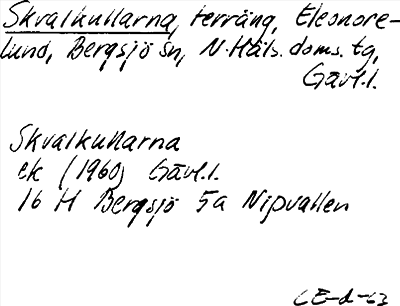 Skvalkullarna, terräng, Eleonore-
lund, Bergsjö sn, N. Häls. doms. tg,
Gävl.l.
Skvalkullarna
ek (1960) Gävl.l.
16 H Bergsjö 5a Nipvallen
CE-d-63